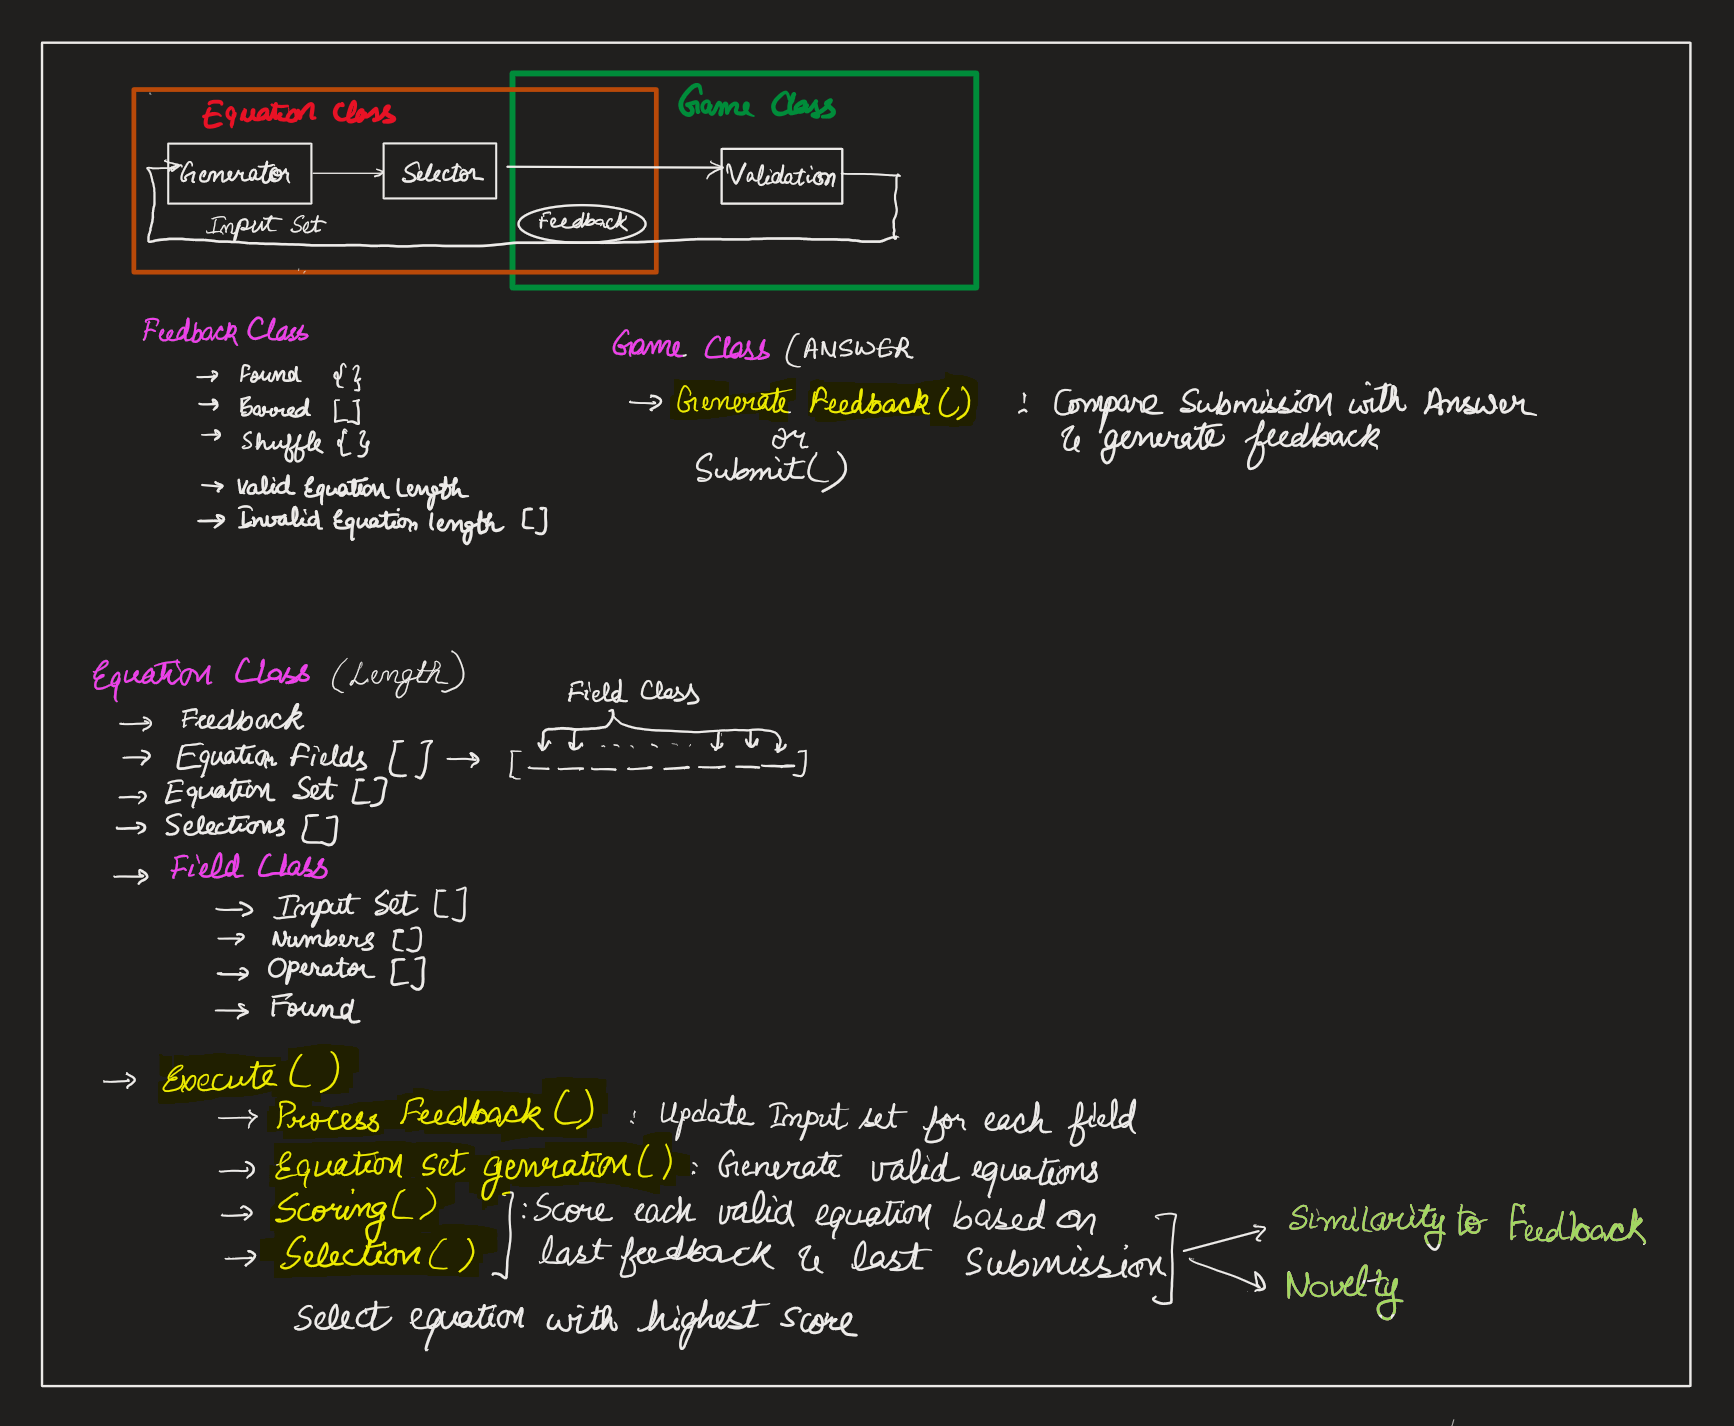 Equation Class
Game Class
Generator
Selector
Validation
Input Set
Feedback
Feedback Class
→ Found { }
→ Barred [ ]
→ Shuffle { }
→ Valid Equation Length
→ Invalid Equation length [ ]
Game Class (ANSWER
→ Generate Feedback() : Compare Submission with Answer
& generate feedback
or
Submit()
Equation Class (Length)
→ Feedback
→ Equation Fields [ ] → [ _ _ _ _ _ _ _ _ ]
Field Class
→ Equation Set [ ]
→ Selections [ ]
→ Field Class
→ Input Set [ ]
→ Numbers [ ]
→ Operator [ ]
→ Found
→ Execute()
→ Process Feedback() : Update Input set for each field
→ Equation set genration() : Generate valid equations
→ Scoring() : Score each valid equation based on
→ Selection() last feedback & last Submission
Similarity to Feedback
Novelty
Select equation with highest score